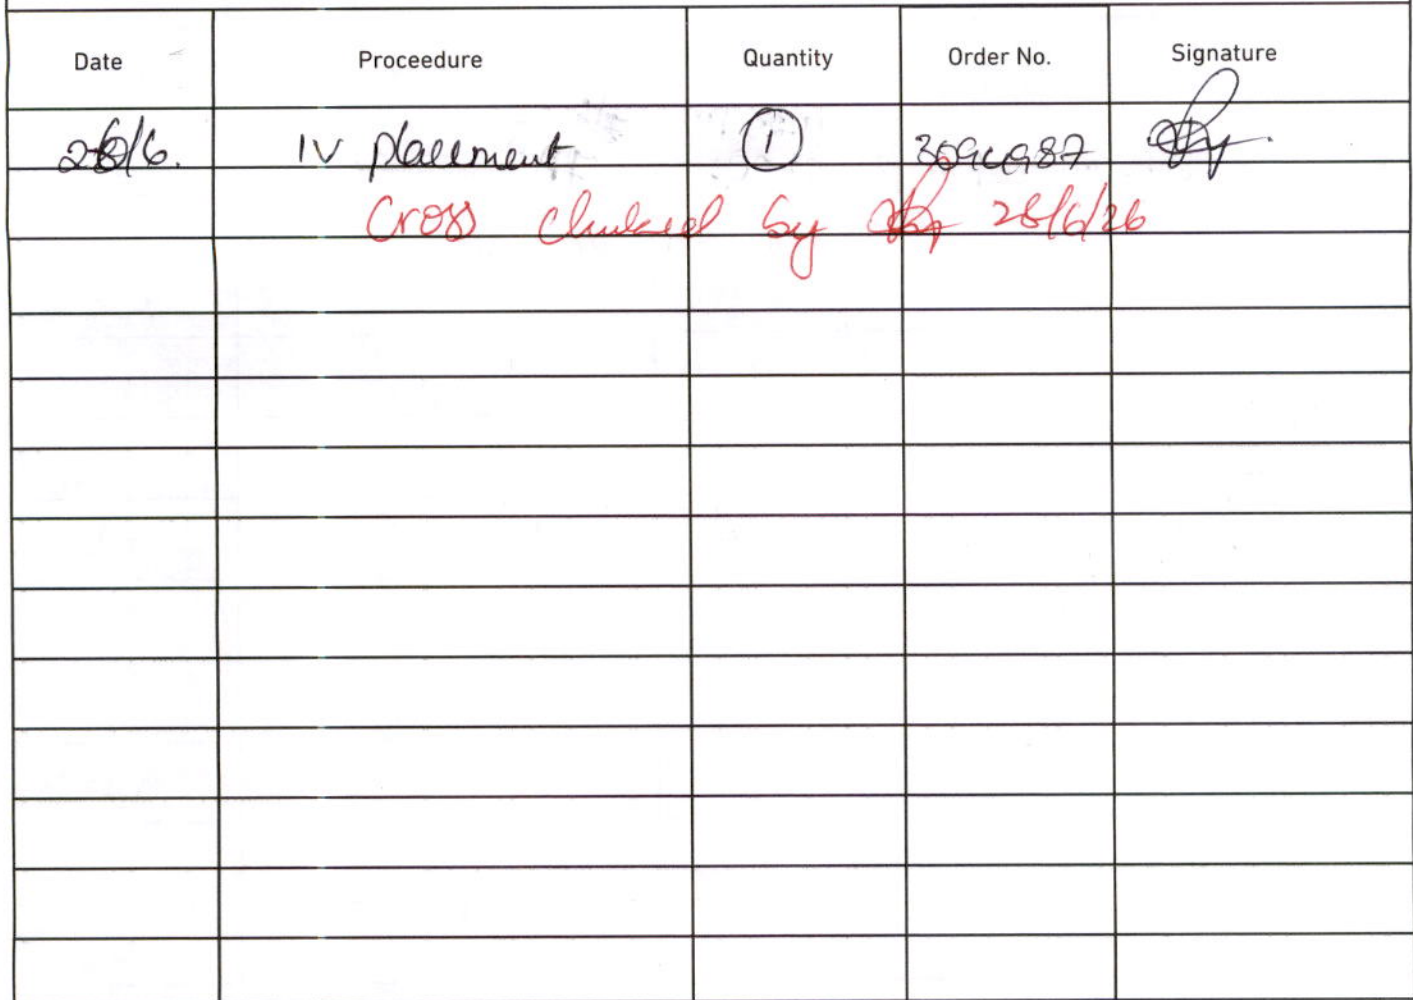 Date Proceedure Quantity Order No. Signature
IV placement 1
Cross checked by 28/6/26